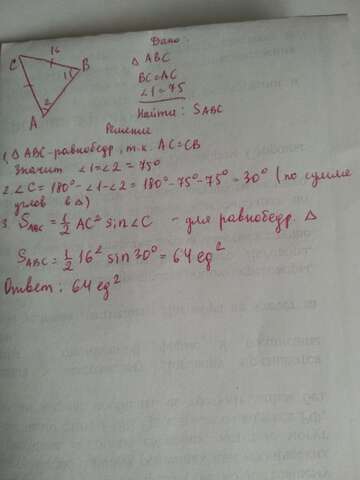 Дано:
C 16 B
△ ABC
1
BC=AC
∠1=75
2
A
Найти: SABC
Решение
1. △ ABC-равнобедр, т.к. AC=CB
Значит ∠1=∠2=75°
2. ∠C=180°-∠1-∠2=180°-75°-75°=30° (по сумме
углов в △)
3. SABC=1/2 AC² sin∠C - для равнобедр. △
SABC=1/2 16² sin30°=64 ед²
Ответ: 64 ед²